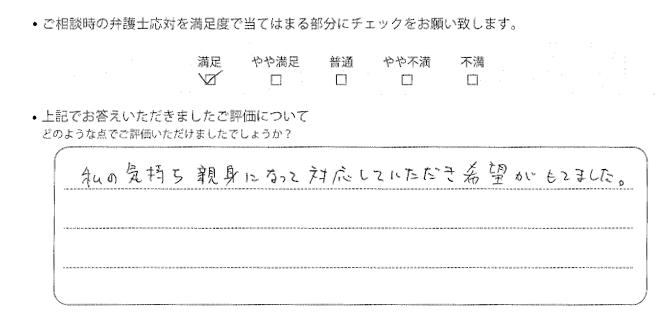 ・ご相談時の弁護士応対を満足度で当てはまる部分にチェックをお願い致します。
満足 やや満足 普通 やや不満 不満
☑ □ □ □ □
・上記でお答えいただきましたご評価について
どのような点でご評価いただけましたでしょうか？
私の気持ち親身になって対応していただき希望がもてました。